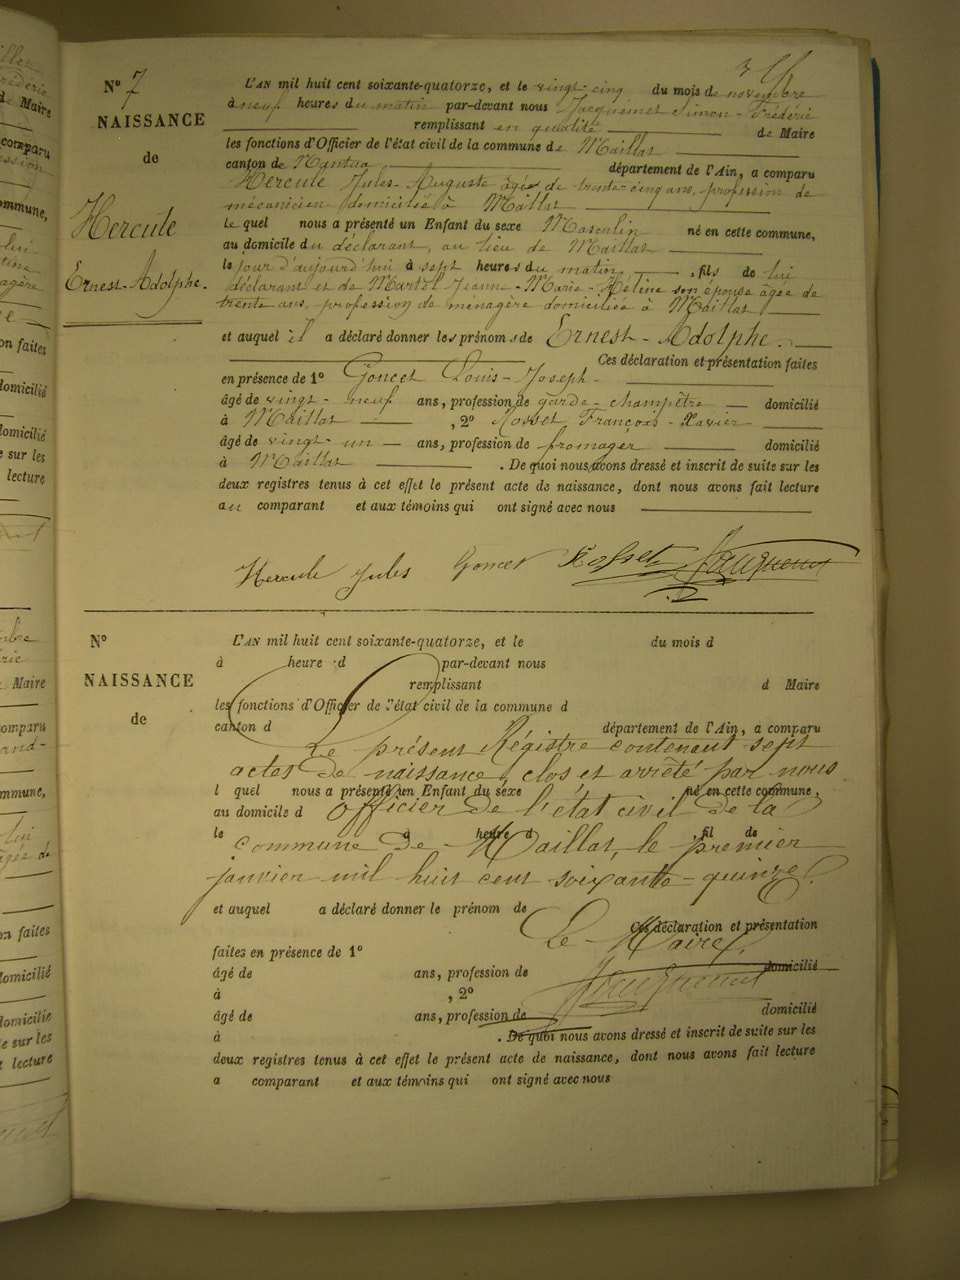 N° 7
NAISSANCE
de
Hercule
Ernest-Adolphe.
L'AN mil huit cent soixante-quatorze, et le vingt-cinq du mois de novembre
à neuf heures du matin par-devant nous Jacquemet Simon-Frédéric
remplissant en qualité de Maire
les fonctions d'Officier de l'état civil de la commune de Maillat
canton de Nantua, département de l'Ain, a comparu
Hercule Jules-Auguste âgé de trente-cinq ans, profession de
mécanicien domicilié à Maillat
Lequel nous a présenté un Enfant du sexe Masculin né en cette commune,
au domicile du déclarant, au lieu de Maillat
le jour d'aujourd'hui à sept heures du matin, fils de lui
déclarant et de Martel Jeanne-Marie-Héline son épouse âgée de
trente ans, profession de ménagère domiciliée à Maillat
et auquel il a déclaré donner les prénoms de Ernest-Adolphe.
Ces déclaration et présentation faites
en présence de 1° Goncet Louis-Joseph
âgé de vingt-neuf ans, profession de garde-champêtre domicilié
à Maillat, 2° Rosset François-Xavier
âgé de vingt-un ans, profession de fromager domicilié
à Maillat. De quoi nous avons dressé et inscrit de suite sur les
deux registres tenus à cet effet le présent acte de naissance, dont nous avons fait lecture
au comparant et aux témoins qui ont signé avec nous
Hercule Jules Goncet Rosset Jacquemet
N°
NAISSANCE
de
L'AN mil huit cent soixante-quatorze, et le du mois d
à heure d par-devant nous
remplissant d Maire
les fonctions d'Officier de l'état civil de la commune d
canton d département de l'Ain, a comparu
Le présent Régistre contenant sept
actes de naissance, clos et arrêté par nous
l quel nous a présenté un Enfant du sexe né en cette commune,
au domicile d officier de l'état civil de la
le à heure d , fil de
commune de Maillat, le premier
janvier mil huit cent soixante-quinze.
et auquel a déclaré donner le prénom de
Ces déclaration et présentation
Le Maire,
faites en présence de 1°
âgé de ans, profession de domicilié
Jacquemet
à , 2°
âgé de ans, profession de domicilié
à . De quoi nous avons dressé et inscrit de suite sur les
deux registres tenus à cet effet le présent acte de naissance, dont nous avons fait lecture
a comparant et aux témoins qui ont signé avec nous